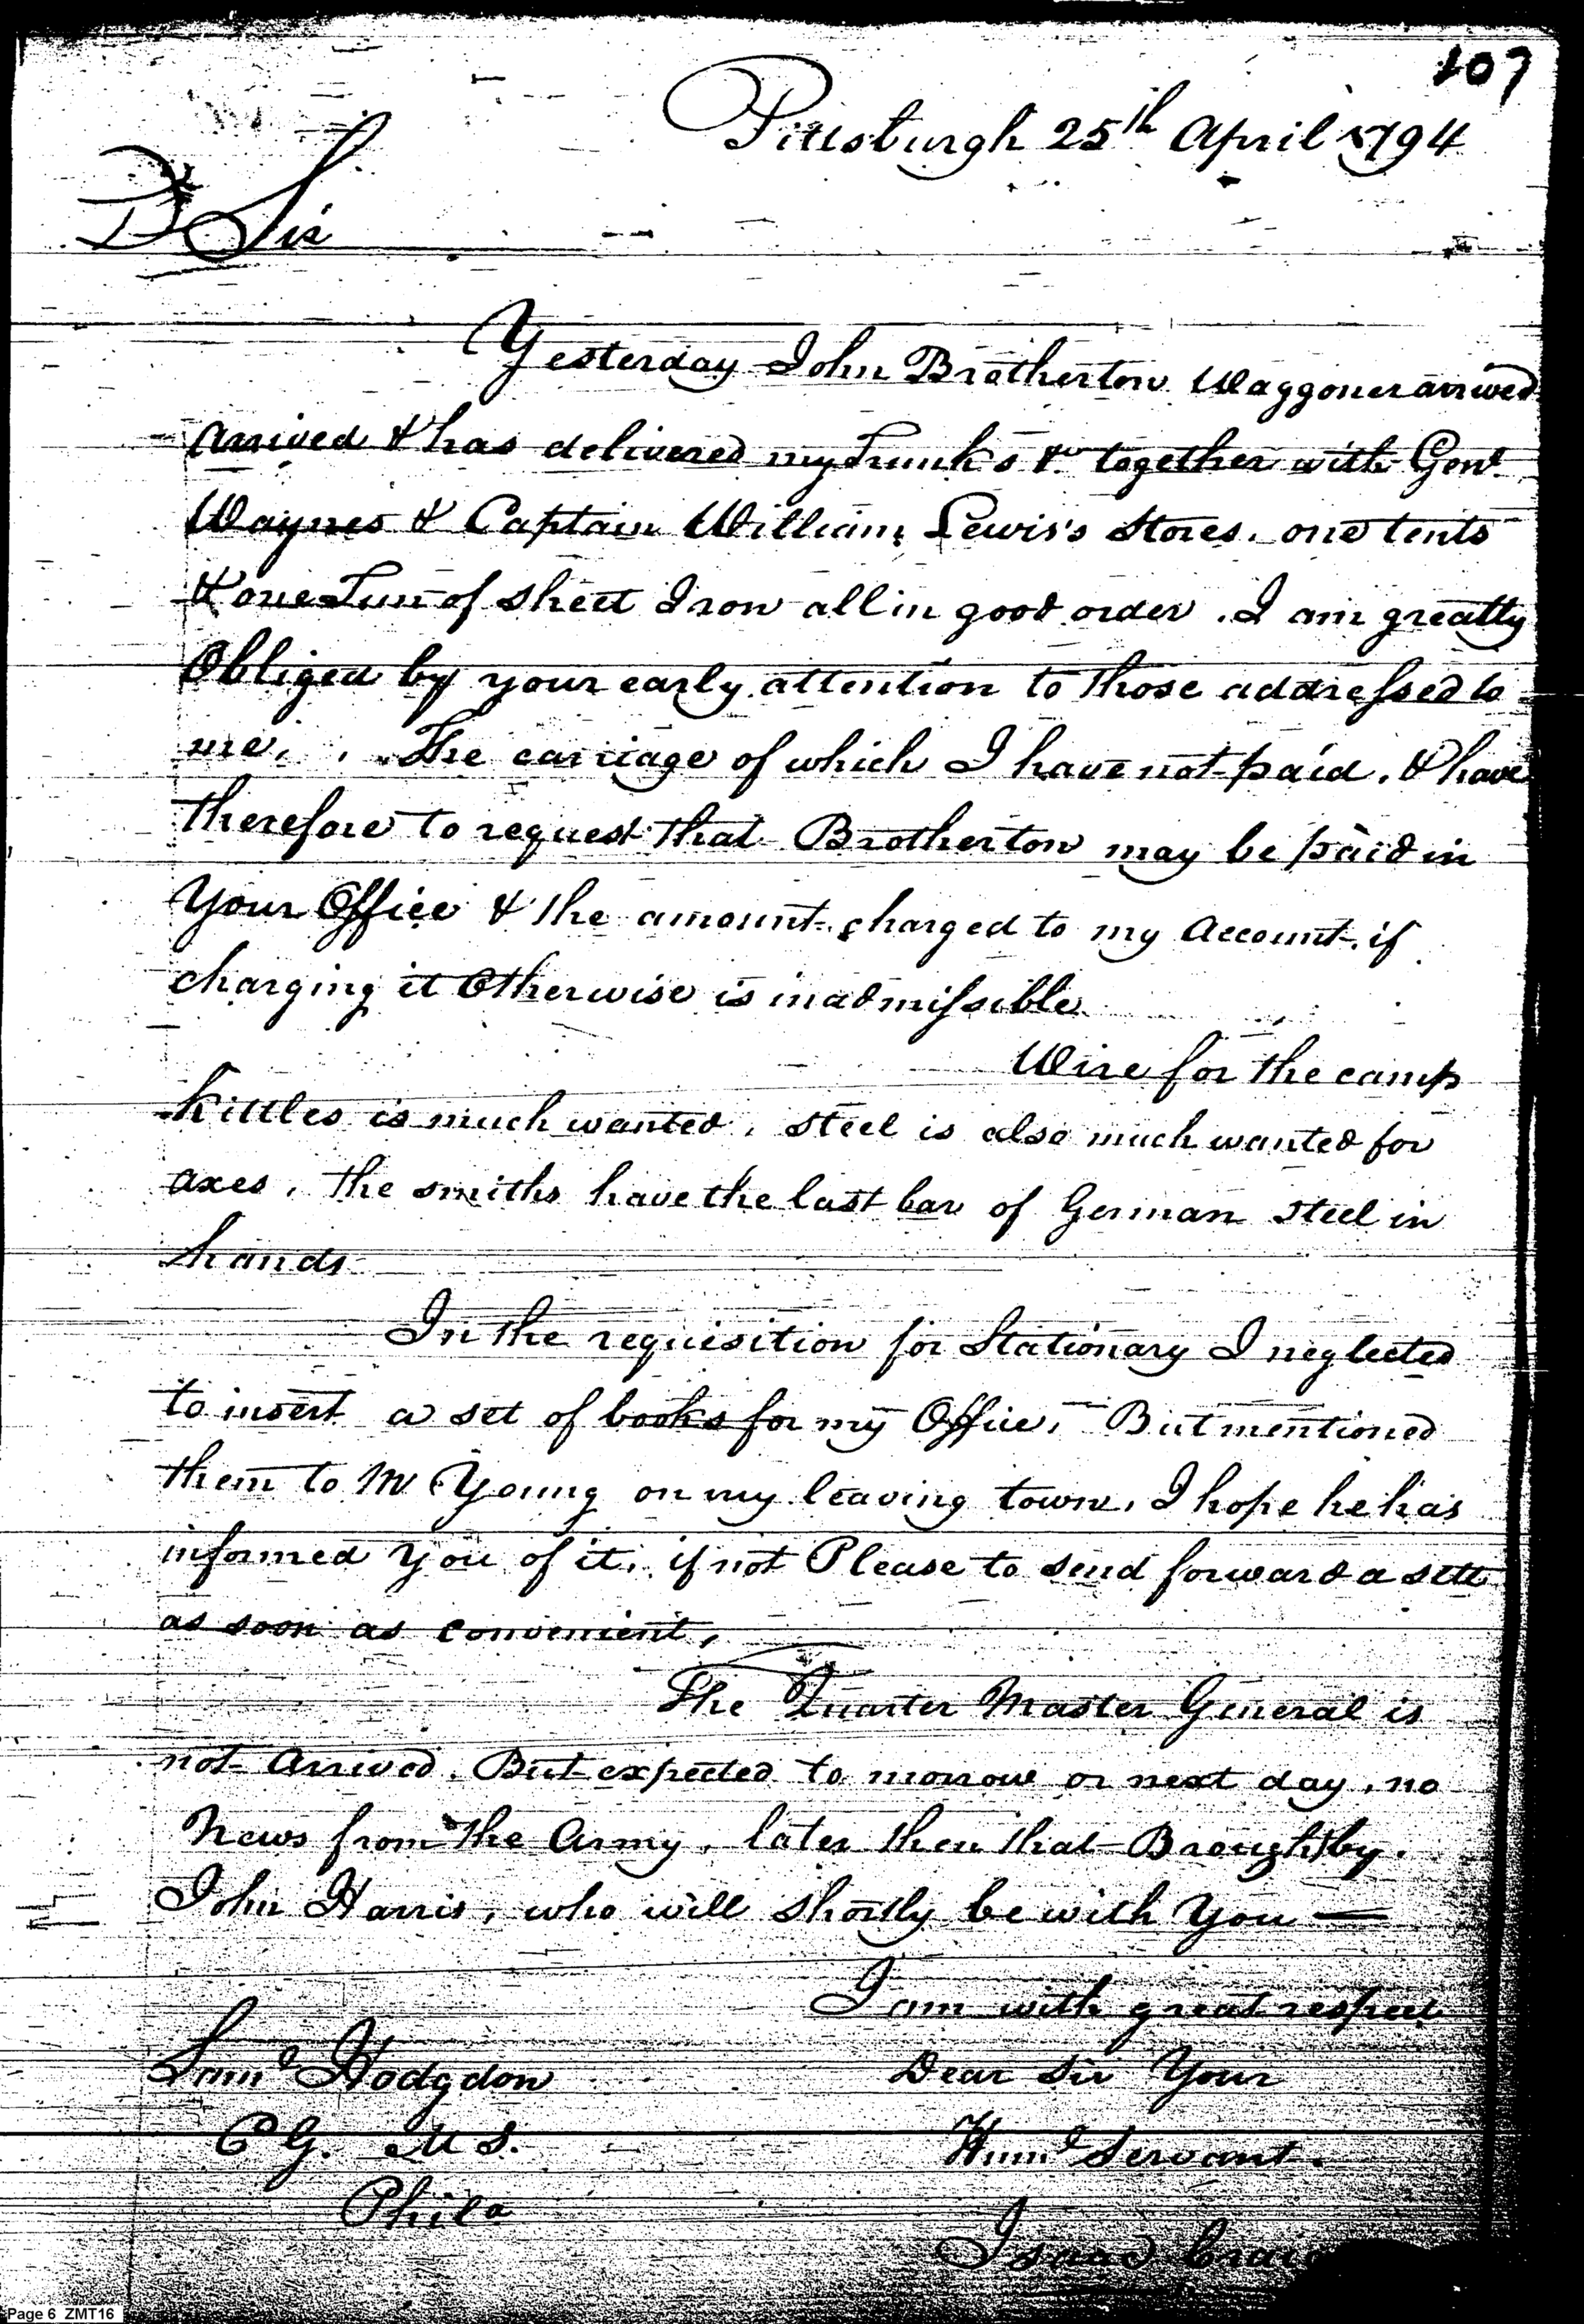 107
Pittsburgh 25th April 1794
D Sir
Yesterday John Brotherton Waggoner arrived
arrived & has delivered my Trunks &c together with Genl
Waynes & Captain William Lewis's Stores. one tents
& one Tun of sheet Iron all in good order. I am greatly
Obliged by your early attention to those addressed to
me. The carriage of which I have not paid. & have
therefore to request that Brotherton may be paid in
Your Office & the amount charged to my Account. if
charging it Otherwise is inadmissible.
Wire for the camp
Kittles is much wanted. Steel is also much wanted for
axes. the smiths have the last bar of German Steel in
hands
In the requisition for Stationary I neglected
to insert a set of books for my Office, But mentioned
them to Mr Young on my leaving town. I hope he has
informed You of it. if not Please to send forward a sett
as soon as convenient,
The Quarter Master General is
not Arrived. But expected to morrow or next day, no
News from the Army, later then that Brought by
John Harris, who will shortly be with You —
I am with great respect
Saml Hodgdon
Dear Sir Your
C G. M S.
Huml Servant.
Phila
Isaac Craig
Page 6 ZMT16